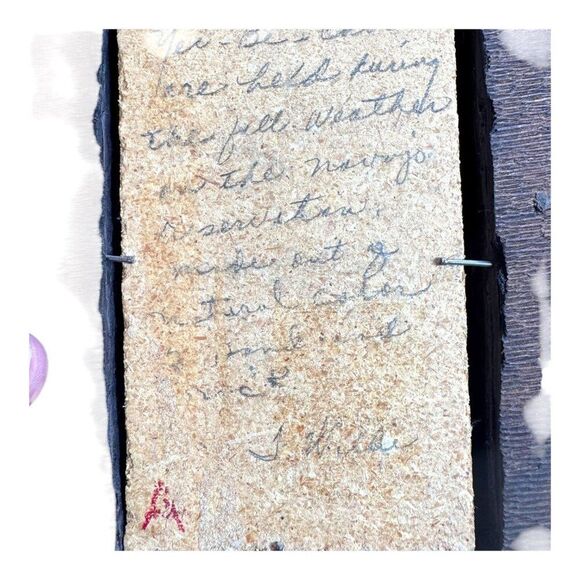 Yei-Be-
are held during
the fall weather
on the navajo
reservation.
made out of
natural color
sand and
rock
J Willie
A